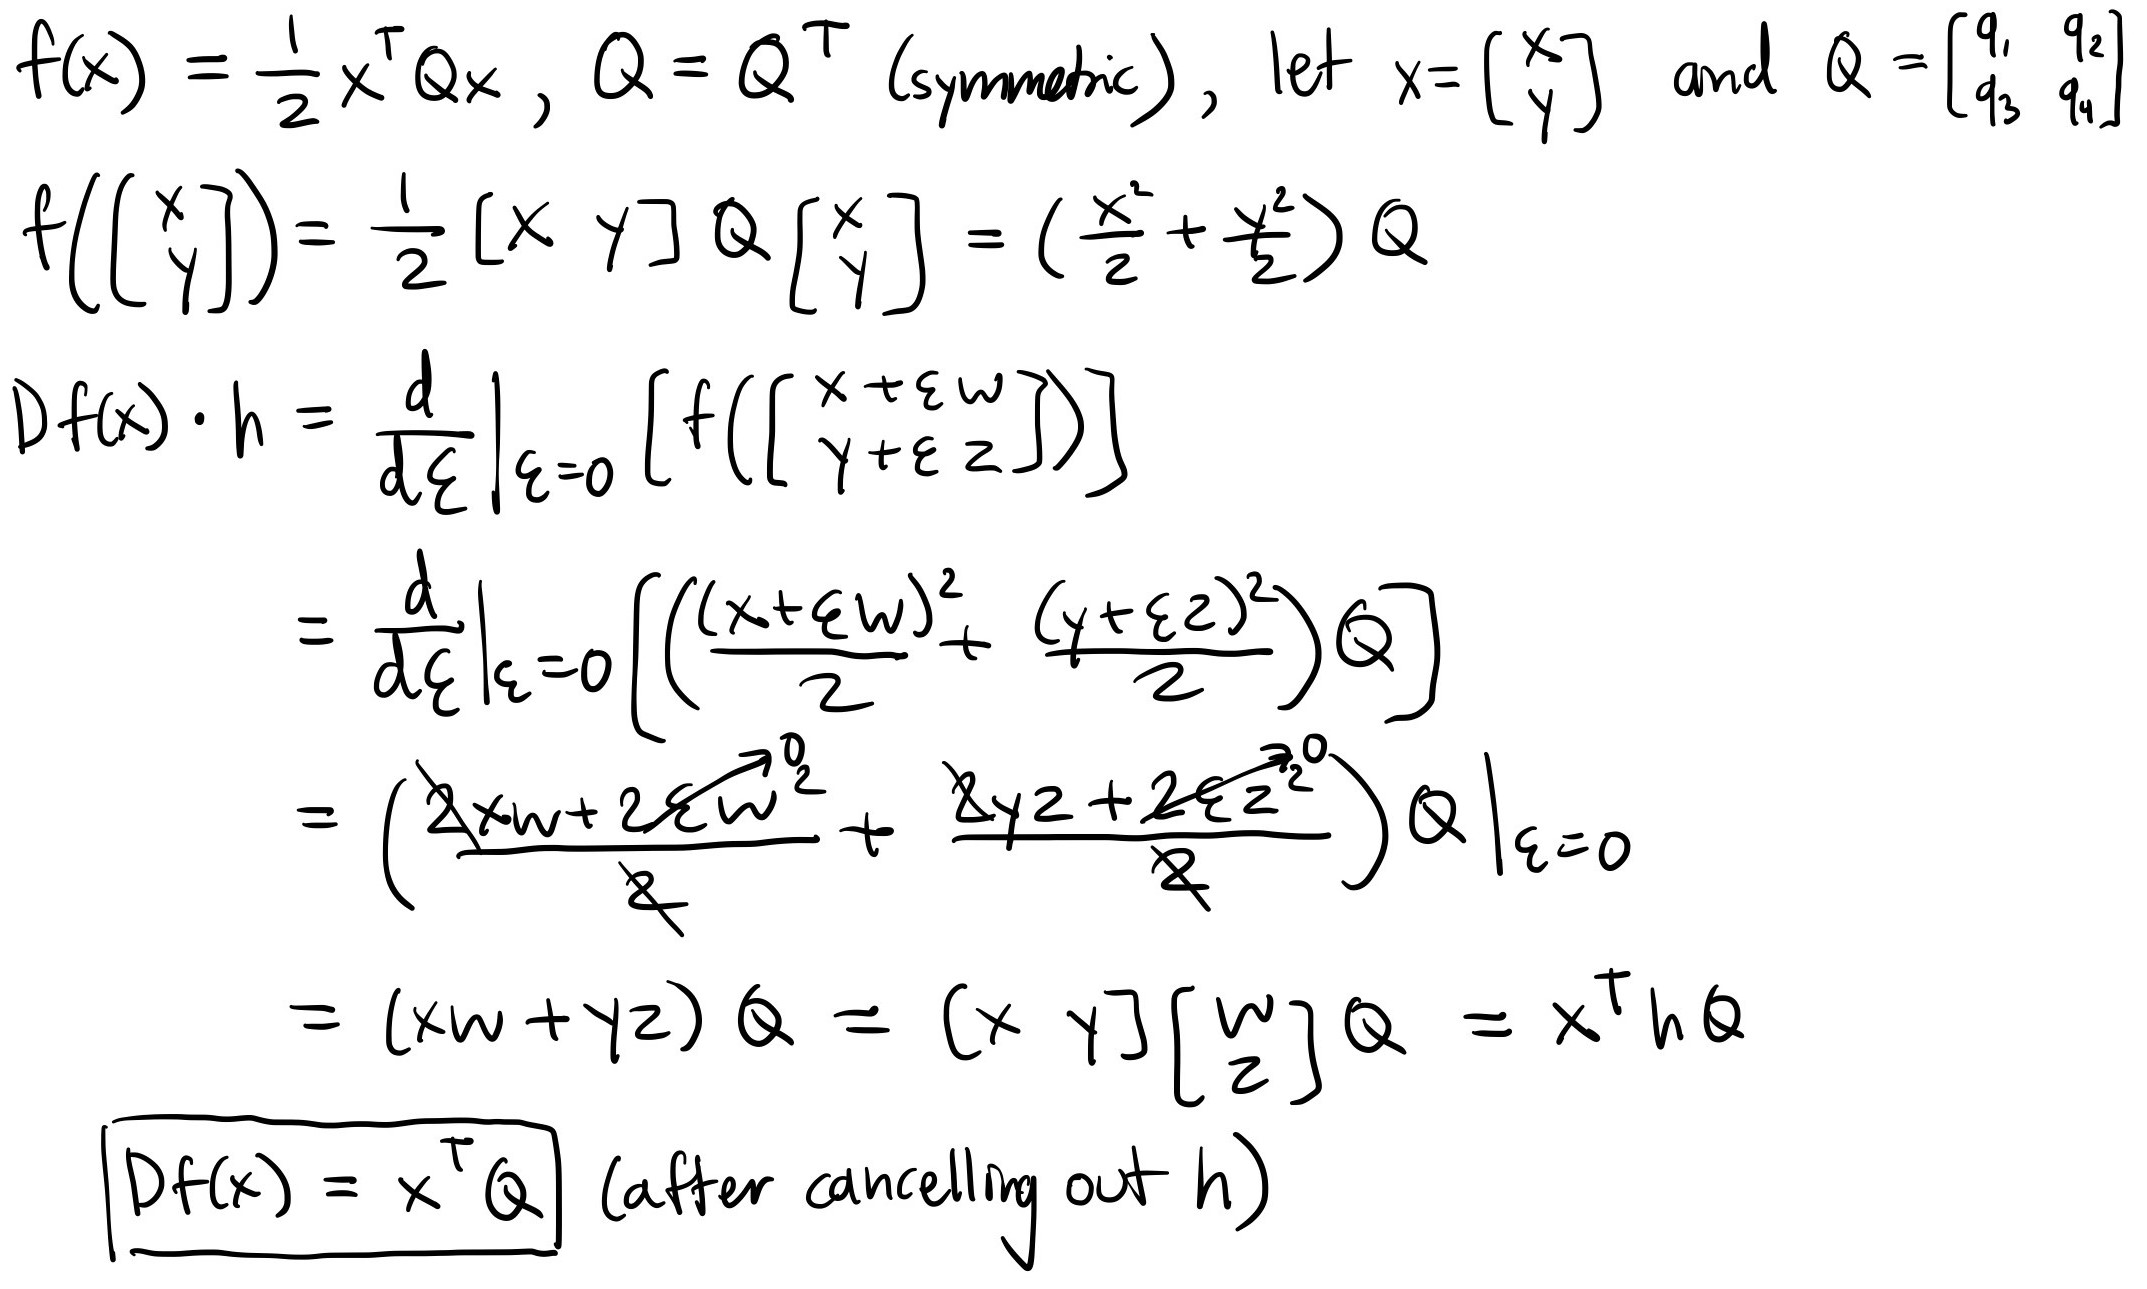 f(x) = 1/2 xᵀQx, Q = Qᵀ (symmetric), let x = [x; y] and Q = [q₁ q₂; q₃ q₄]
f([x; y]) = 1/2 [x y] Q [x; y] = (x²/2 + y²/2) Q
Df(x) · h = d/dε |ε=0 [f([x + εw; y + εz])]
= d/dε |ε=0 [((x+εw)²/2 + (y+εz)²/2) Q]
= ((2xw + 2εw²)/2 + (2yz + 2εz²)/2) Q |ε=0
0 0
= (xw + yz) Q = [x y] [w; z] Q = xᵀhQ
Df(x) = xᵀQ (after cancelling out h)